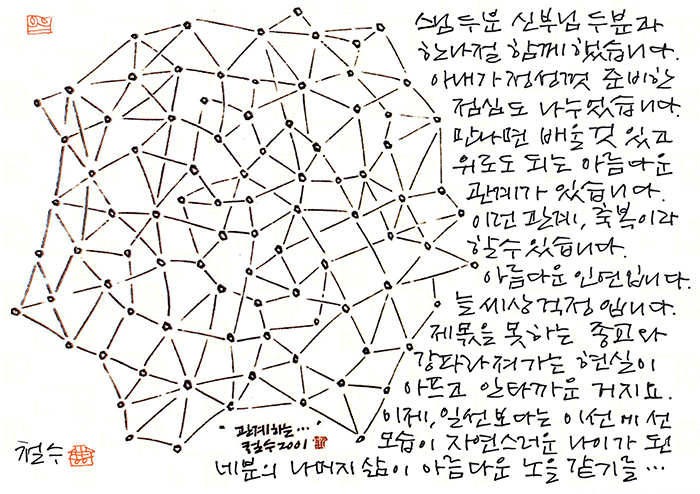 스님 두분 신부님 두분과
한나절 함께 했습니다.
아내가 정성껏 준비한
점심도 나누었습니다.
만나면 배울 것 있고
위로도 되는 아름다운
관계가 있습니다.
이런 관계, 축복이라
할 수 있습니다.
아름다운 인연입니다.
늘 세상 걱정입니다.
제 몫을 못하는 종교와
강파라져가는 현실이
아프고 안타까운 거지요.
이제, 일선보다는 이선에 선
모습이 자연스러운 나이가 된
네분의 나머지 삶이 아름다운 노을 같기를…
"관계하는…"
철수 2001
철수